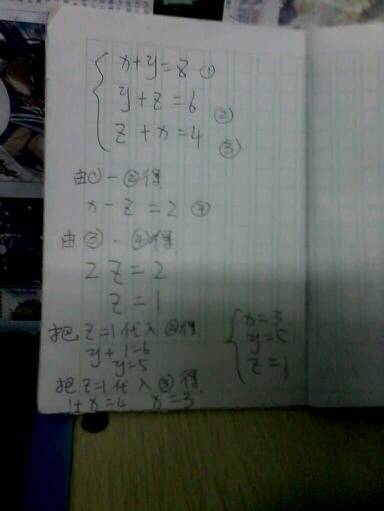 x+y=8 ①
y+z=6 ②
z+x=4 ③
由①-②得
x-z=2 ④
由③-④得
2z=2
z=1
把z=1代入②得
y+1=6
y=5
把z=1代入③得
1+x=4 x=3
x=3
y=5
z=1